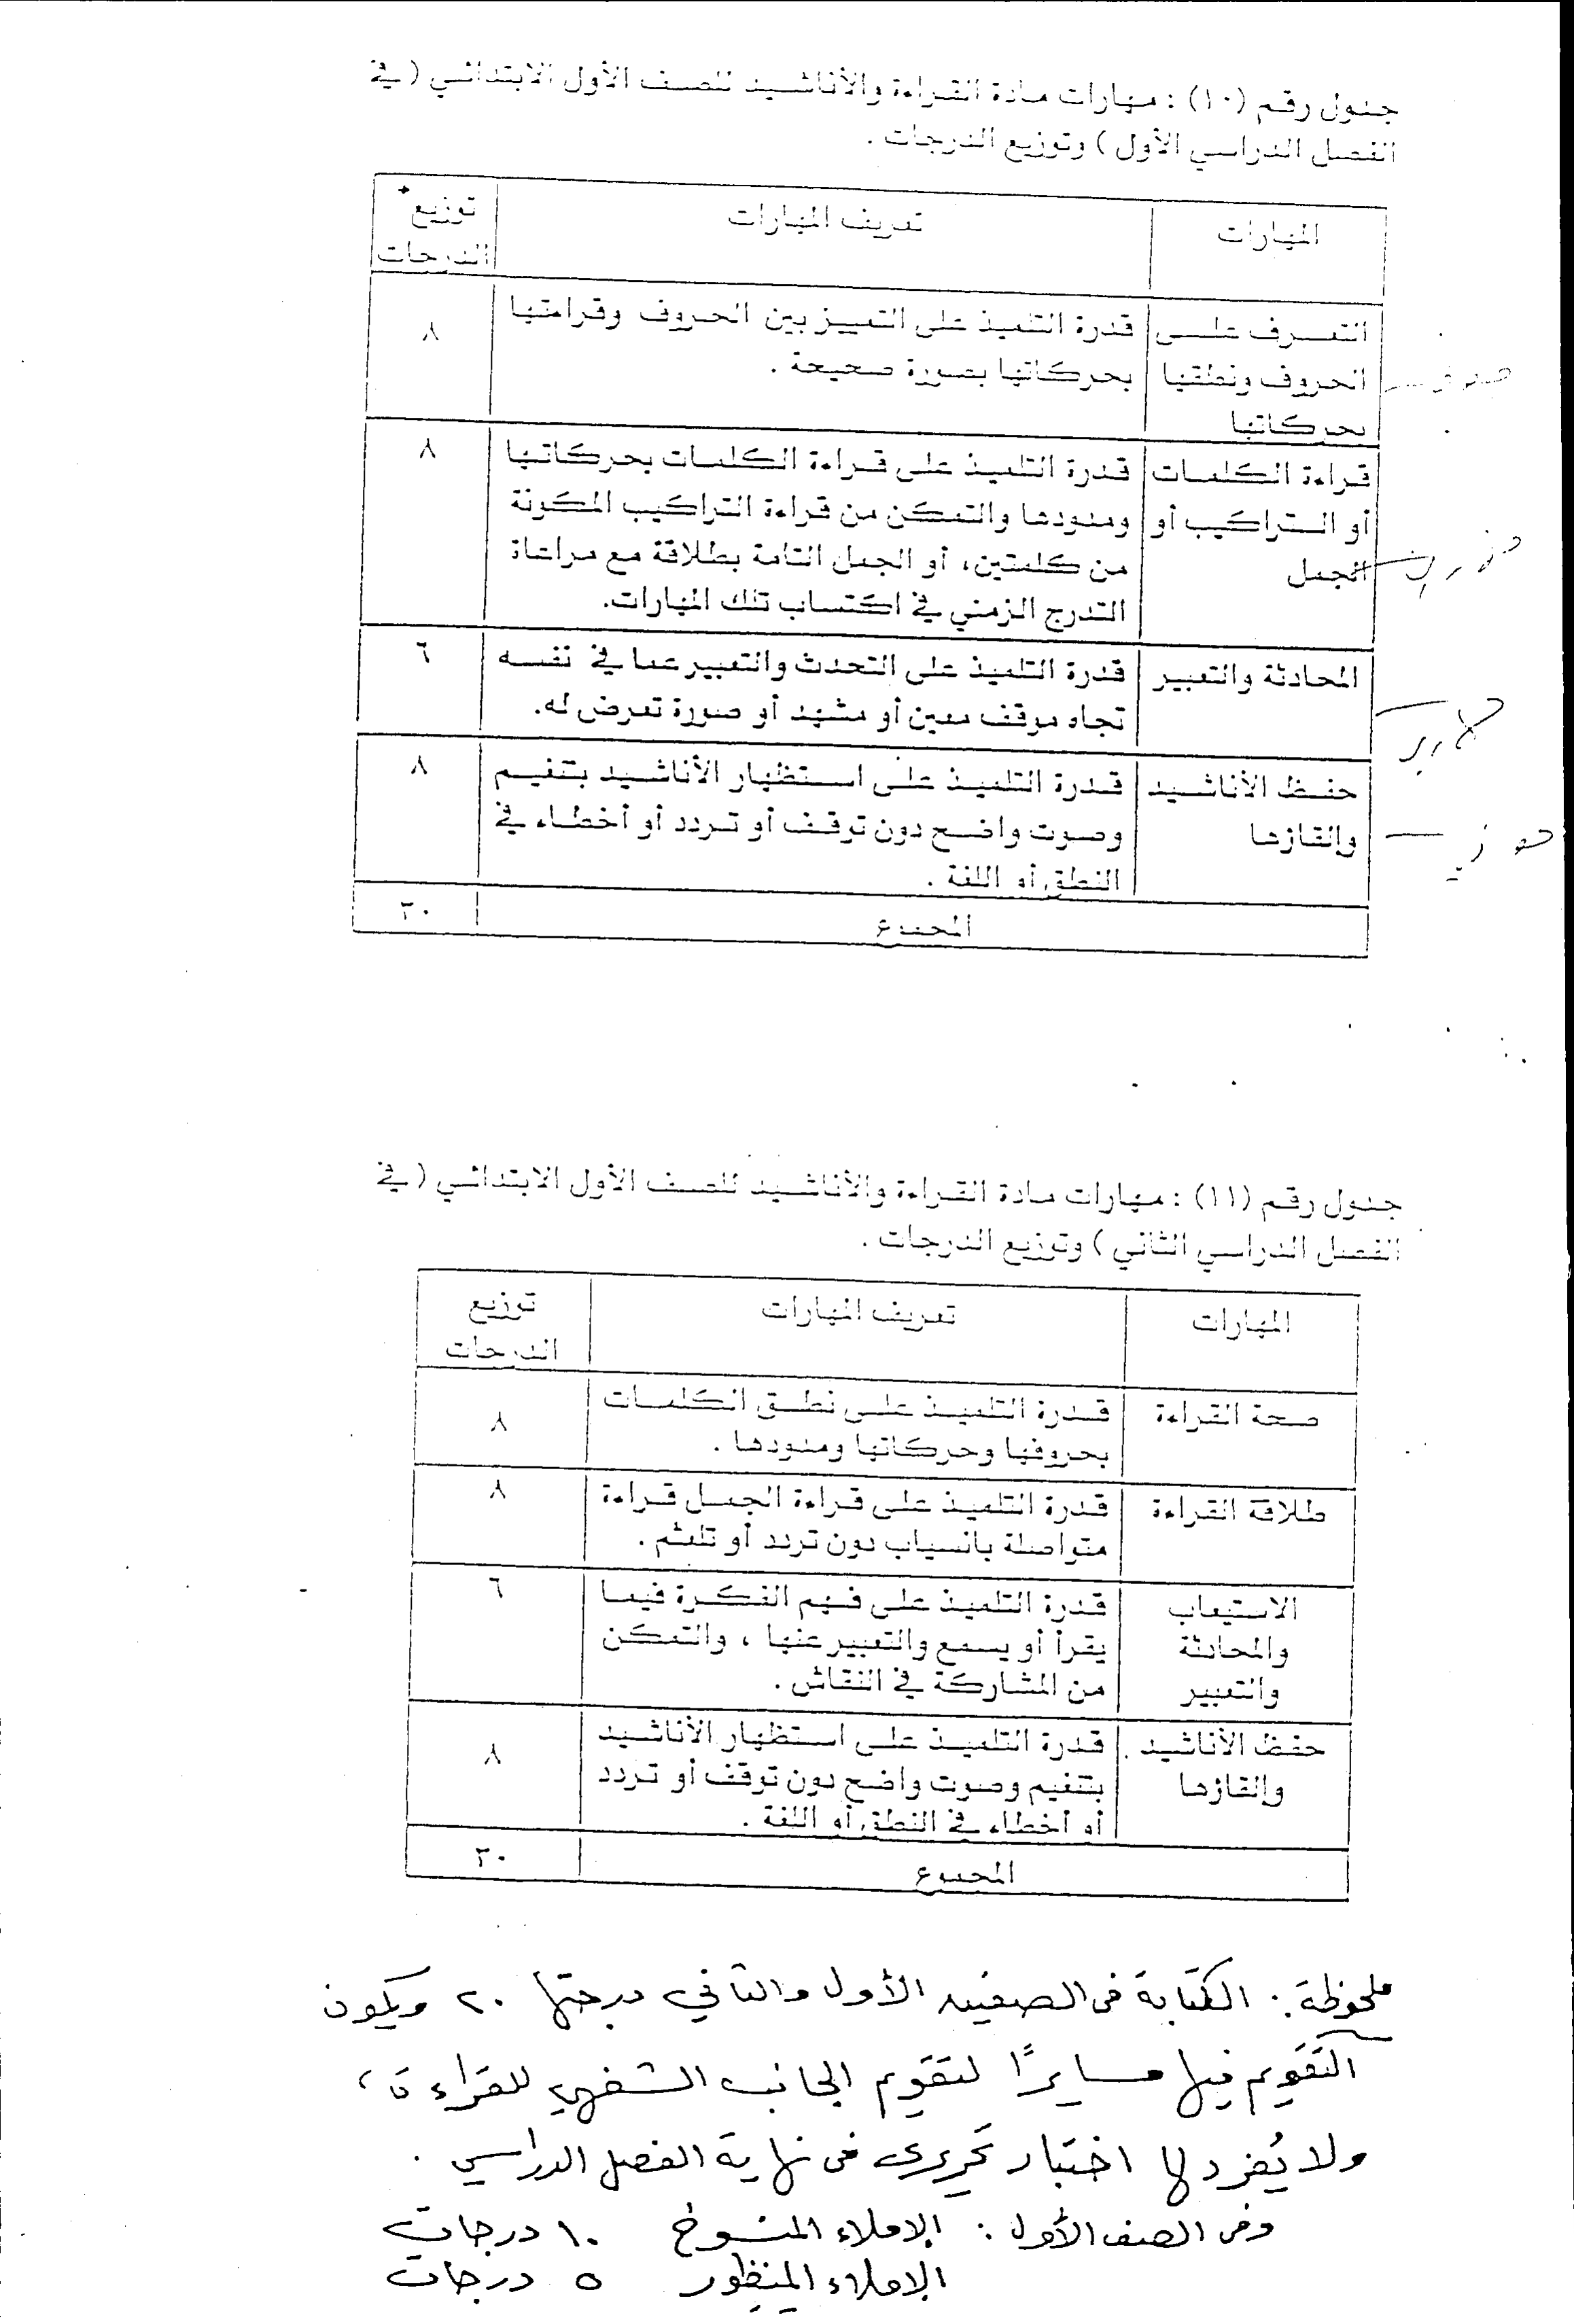 جدول رقم (١٠) : مهارات مادة القراءة والأناشيد للصف الأول الابتدائي (في
الفصل الدراسي الأول) وتوزيع الدرجات .
المهارات تعريف المهارات توزيع
الدرجات
التعرف على قدرة التلميذ على التمييز بين الحروف وقراءتها ٨
الحروف ونطقها بحركاتها بصورة صحيحة .
بحركاتها
قراءة الكلمات قدرة التلميذ على قراءة الكلمات بحركاتها ٨
أو التراكيب أو ومدودها والتمكن من قراءة التراكيب المكونة
الجمل من كلمتين، أو الجمل التامة بطلاقة مع مراعاة
التدرج الزمني في اكتساب تلك المهارات.
المحادثة والتعبير قدرة التلميذ على التحدث والتعبير عما في نفسه ٦
تجاه موقف معين أو مشهد أو صورة تعرض له.
حفظ الأناشيد قدرة التلميذ على استظهار الأناشيد بتنغيم ٨
وإلقاؤها وصوت واضح دون توقف أو تردد أو أخطاء في
النطق أو اللغة .
المجموع ٣٠
جدول رقم (١١) : مهارات مادة القراءة والأناشيد للصف الأول الابتدائي (في
الفصل الدراسي الثاني) وتوزيع الدرجات .
المهارات تعريف المهارات توزيع
الدرجات
صحة القراءة قدرة التلميذ على نطق الكلمات ٨
بحروفها وحركاتها ومدودها .
طلاقة القراءة قدرة التلميذ على قراءة الجمل قراءة ٨
متواصلة بانسياب دون تردد أو تلعثم .
الاستيعاب قدرة التلميذ على فهم الفكرة فيما ٦
والمحادثة يقرأ أو يسمع والتعبير عنها ، والتمكن
والتعبير من المشاركة في النقاش .
حفظ الأناشيد قدرة التلميذ على استظهار الأناشيد ٨
وإلقاؤها بتنغيم وصوت واضح دون توقف أو تردد
أو أخطاء في النطق أو اللغة .
المجموع ٣٠
ملحوظة : الكتابة في الصفين الأول والثاني درجتها ٢٠ ويكون
التقويم فيها مسايرًا لتقويم الجانب الشفهي للقراءة ،
ولا يُفرد لها اختبار تحريري في نهاية الفصل الدراسي .
وفي الصف الأول : الإملاء المنسوخ ١٠ درجات
الإملاء المنظور ٥ درجات